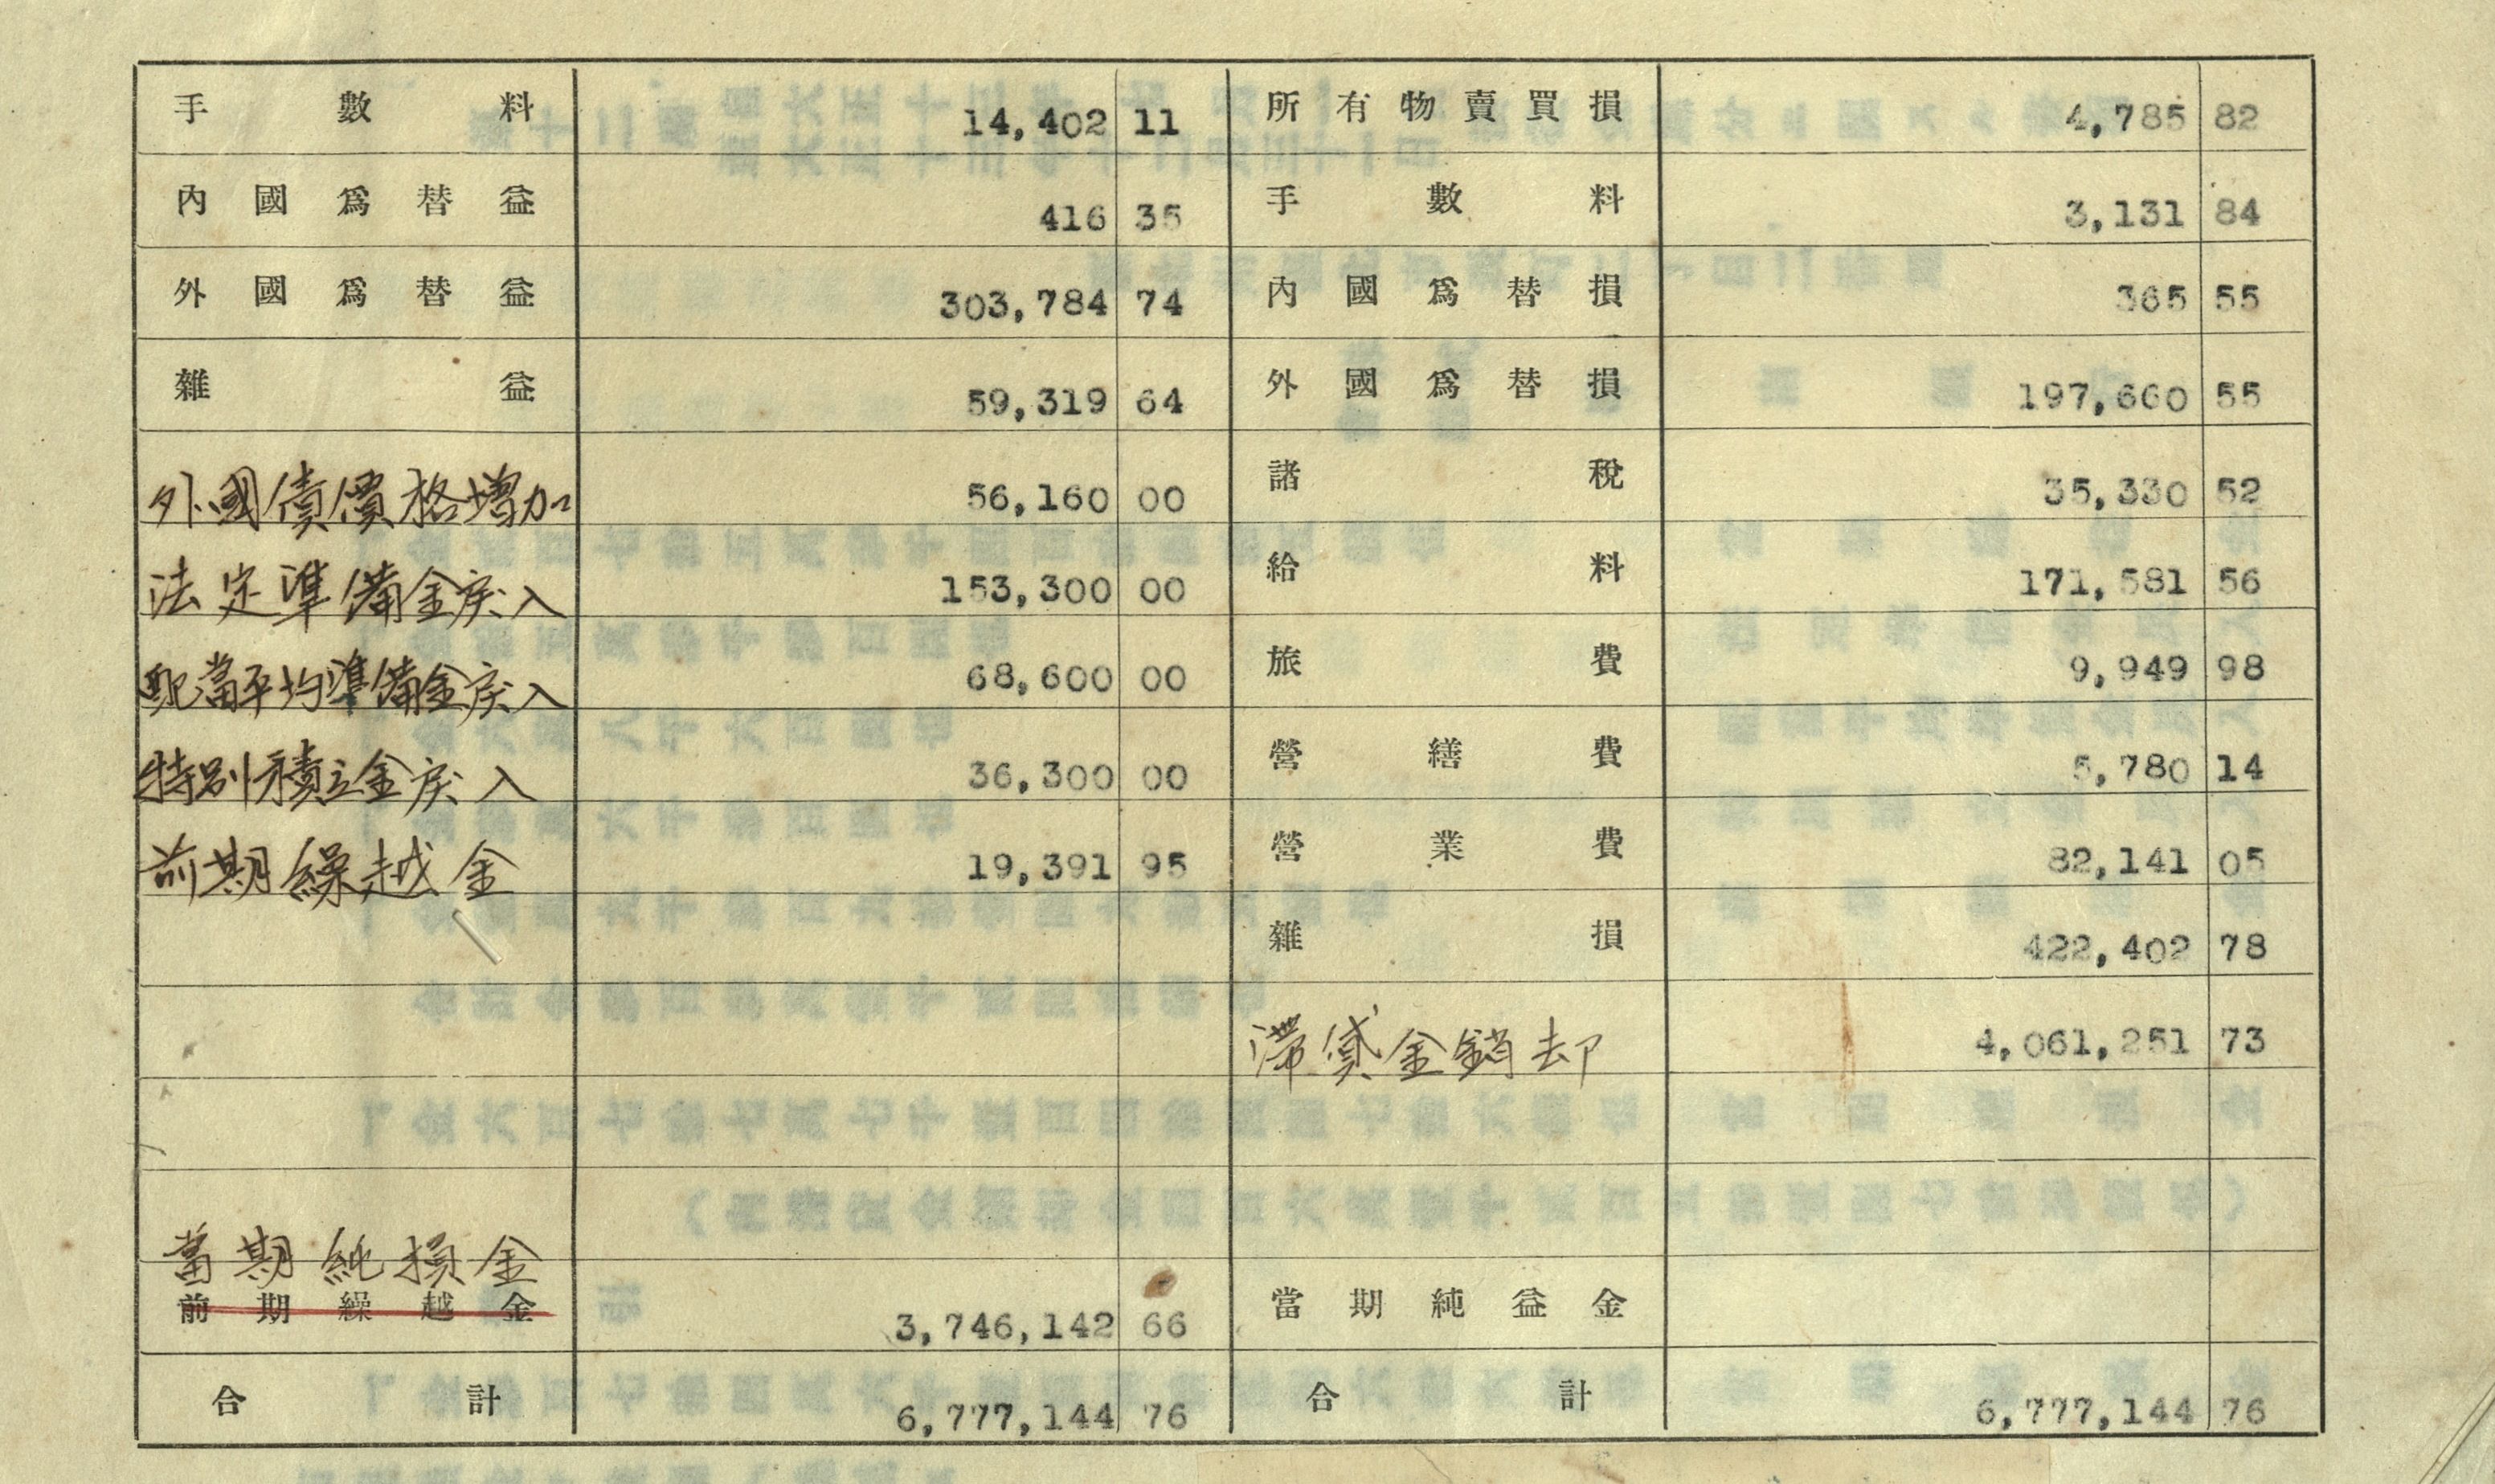 手數料 14,402 11 所有物賣買損 4,785 82
內國爲替益 416 35 手數料 3,131 84
外國爲替益 303,784 74 內國爲替損 365 55
雜益 59,319 64 外國爲替損 197,660 55
外國債價格增加 56,160 00 諸稅 35,330 52
法定準備金戾入 153,300 00 給料 171,581 56
配當平均準備金戾入 68,600 00 旅費 9,949 98
特別積立金戾入 36,300 00 營繕費 5,780 14
前期繰越金 19,391 95 營業費 82,141 05
雜損 422,402 78
滯貸金銷却 4,061,251 73
當期純損金
前期繰越金 3,746,142 66 當期純益金
合計 6,777,144 76 合計 6,777,144 76